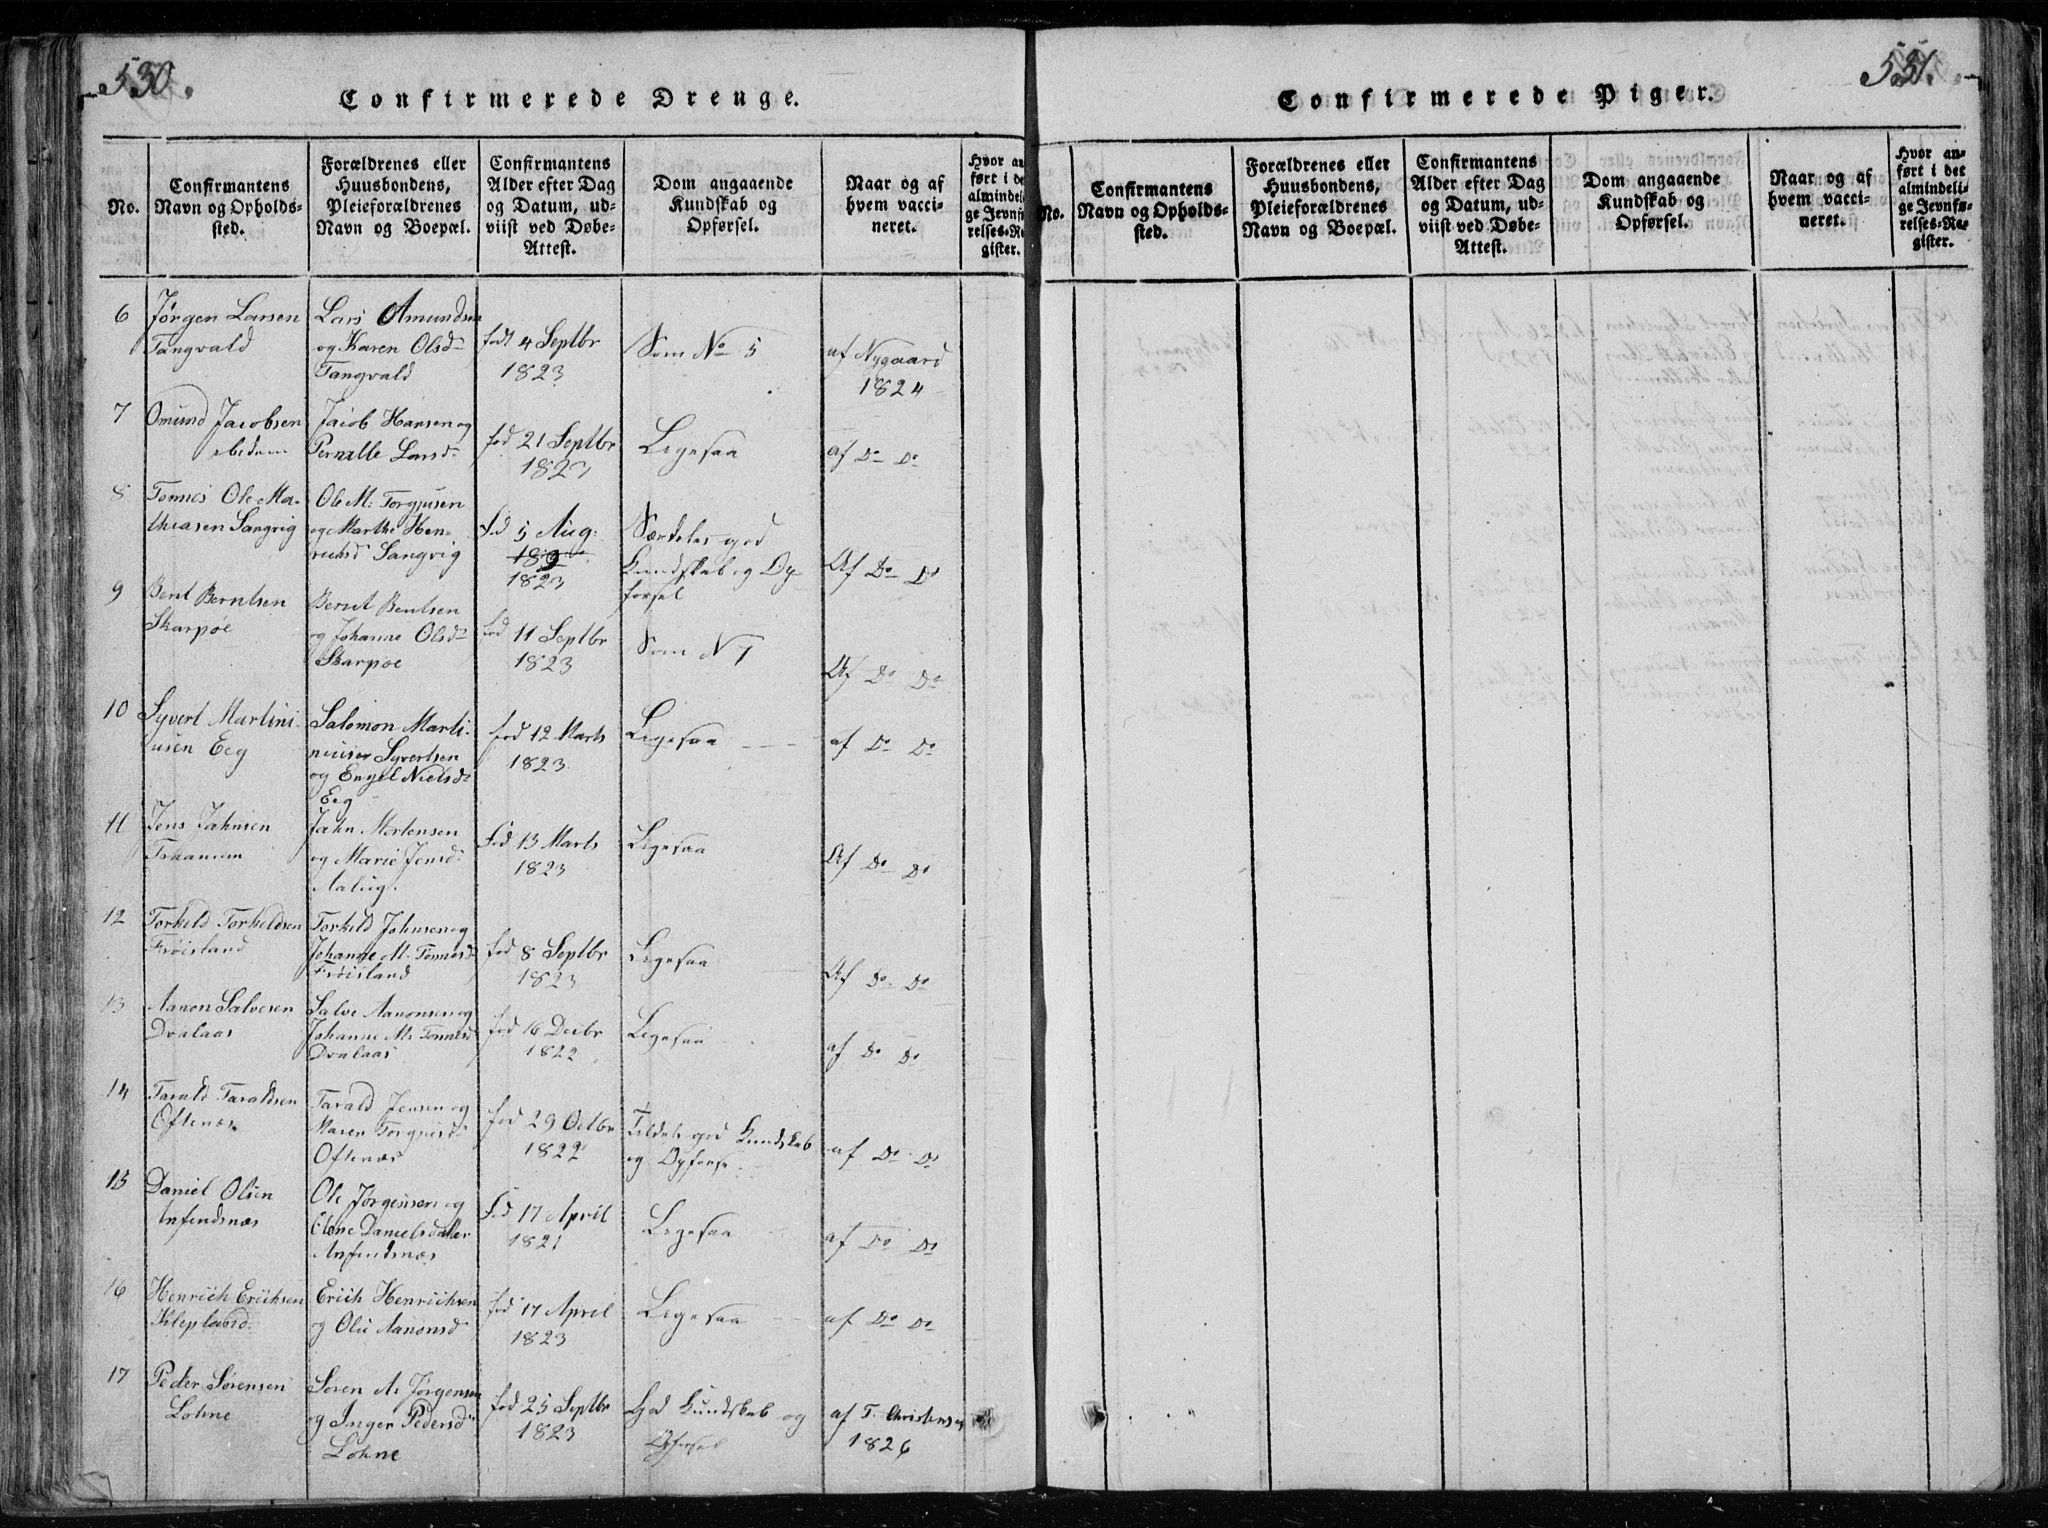 530.
Confirmerede Drenge.
No.
Confirmantens Navn og Opholds-sted.
Forældrenes eller Huusbondens, Pleieforældrenes Navn og Boepæl.
Confirmantens Alder efter Dag og Datum, ud-viist ved Døbe-Attest.
Dom angaaende Kundskab og Opførsel.
Naar og af hvem vacci-neret.
Hvor an-ført i de almindel-ge Jevnfø-relses-Re-gister.
6
Jørgen Larsen
Tangvald
Lars Amundsen
og Karen Olsd
Tangvald
født 4 Septbr
1823
Som No 5
af Nygaard
1824
7
Omund Jacobsen
ibidem
Jacob Hansen og
Pernille Larsd
fød 21 Septbr
1823
Ligesaa
af Do Do
8
Tønnes Ole Ma-
thiasen Langvig
Ole M: Torgjusen
og Marthe Hen-
richsd Langvig
fød 5 Aug:
1823
Særdeles god
Kundskab og Op-
førsel
Af Do Do
9
Bent Berntsen
Skarpøe
Bernt Bentsen
og Johanne Olsd
Skarpøe
fød 11 Septbr
1823
Som N 7
Af Do Do
10
Syvert Martini-
usen Eeg
Salomon Marti-
niusen Syvertsen
og Engel Nielsd
Eeg
fød 12 Marts
1823
Ligesaa
af Do Do
11
Jens Jahnsen
Jahn Mortensen
og Marie Jensd
fød 13 Marts
1823
Ligesaa
Af Do Do
12
Torkild Torkildsen
Frøisland
Torkild Johnsen og
Johanne M. Tønnesd
Frøisland
fød 8 Septbr
1823
Ligesaa
Af Do Do
13
Aanon Salvesen
Dvalaas
Salve Aanonsen og
Johanne M. Tønnesd
Dvalaas
fød 16 Decbr
1822
Ligesaa
af Do Do
14
Tarald Taraldsen
Oftenæs
Tarald Jensen og
Maren Torgjusd
Oftenæs
fød 29 Octbr
1822
god Kundskab
og Opførsel
af Do Do
15
Daniel Olsen
Anfindsnæs
Ole Jørgensen og
Elene Danielsdatter
Anfindsnæs
fød 17 April
1821
Ligesaa
af Do Do
16
Henrich Erichsen
Klepland
Erich Henrichsen
og Olie Aanonsd
fød 17 April
1823
Ligesaa
af Do Do
17
Peder Sørensen
Lohne
Søren A. Jørgensen
og Inger Pedersd
Lohne
fød 25 Septbr
1823
God Kundskab og
Opførsel
af T. Christensen
1826
531.
Confirmerede Piger.
No.
Confirmantens Navn og Opholds-sted.
Forældrenes eller Huusbondens, Pleieforældrenes Navn og Boepæl.
Confirmantens Alder efter Dag og Datum, ud-viist ved Døbe-Attest.
Dom angaaende Kundskab og Opførsel.
Naar og af hvem vacci-neret.
Hvor an-ført i det almindeli-ge Jevnfø-relses-Re-gister.